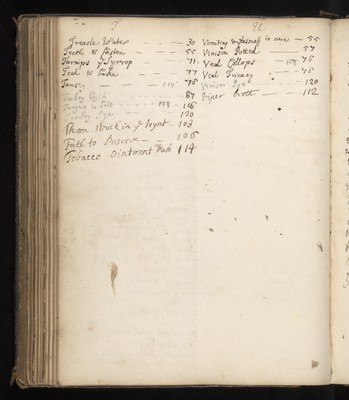 T
Treacle Water — 30
Teeth to fasten — 55
Turnips y Syrrop — 71
Teal to bake — 77
Tansy — 115 — 78
Turky — 87
Tongue to Salt — 113 — 116
Turky Pye — 120
Thorn struck in y Joynt — 103
Teeth to Preserve — 106
Tobacco Ointment 114
U
Vomiting & to cure — 55
Vinison Potted — 57
Veal Collops — 78
Veal — 78
Venison Pye — 120
Viper broth — 112